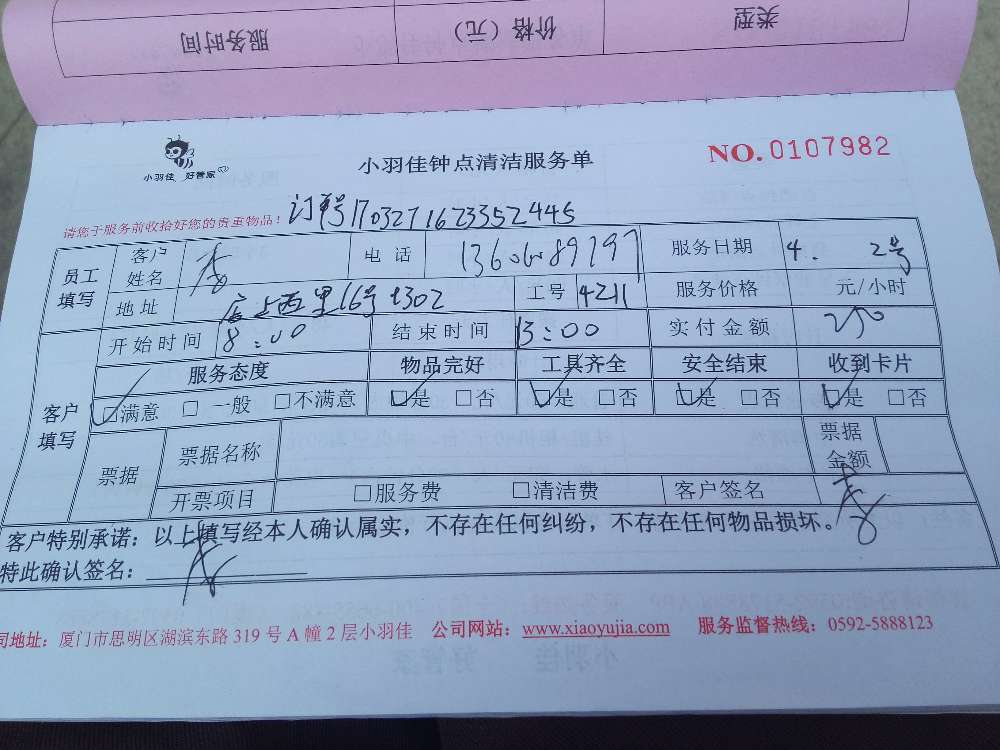 类型 价格（元） 服务时间
小羽佳 好管家
小羽佳钟点清洁服务单
NO. 0107982
请您于服务前收拾好您的贵重物品！ 订单号1703271623352445
员工填写 客户姓名 电 话 服务日期 4. 2号
地 址 后上西里16号1302 工号 4211 服务价格 元/小时
客户填写 开始时间 8:00 结束时间 13:00 实付金额 250
服务态度 物品完好 工具齐全 安全结束 收到卡片
☑满意 □一般 □不满意 ☑是 □否 ☑是 □否 ☑是 □否 ☑是 □否
票据 票据名称 票据金额
开票项目 □服务费 □清洁费 客户签名
客户特别承诺：以上填写经本人确认属实，不存在任何纠纷，不存在任何物品损坏。
特此确认签名：
司地址：厦门市思明区湖滨东路 319 号 A 幢 2 层小羽佳 公司网站：www.xiaoyujia.com 服务监督热线：0592-5888123